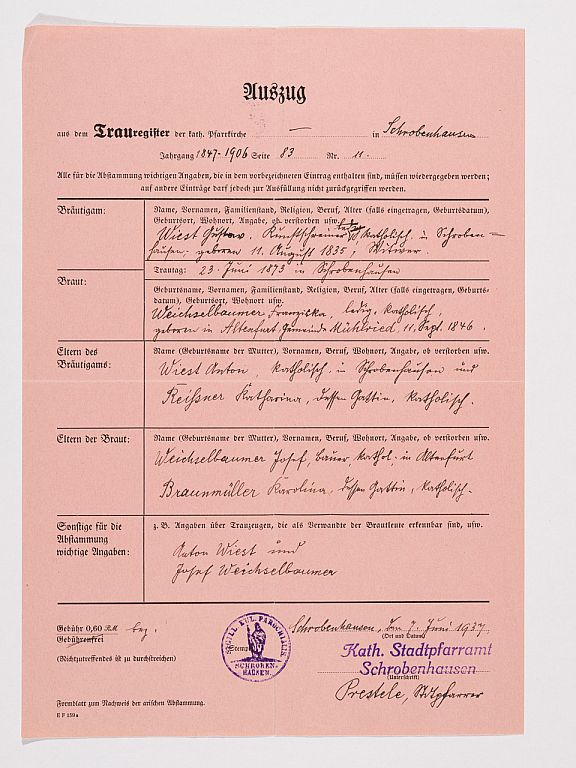 Auszug
aus dem Trauregister der kath. Pfarrkirche — in Schrobenhausen
Jahrgang 1847-1906 Seite 83 Nr. 11.
Alle für die Abstammung wichtigen Angaben, die in dem vorbezeichneten Eintrag enthalten sind, müssen wiedergegeben werden;
auf andere Einträge darf jedoch zur Ausfüllung nicht zurückgegriffen werden.
Bräutigam:
Name, Vornamen, Familienstand, Religion, Beruf, Alter (falls eingetragen, Geburtsdatum),
Geburtsort, Wohnort, Angabe, ob verstorben usw.
Wiest Gustav, Kunstschreiner, katholisch in Schroben-
hausen, geboren 11. August 1835; Witwer.
Trautag: 23. Juni 1873 in Schrobenhausen
Braut:
Geburtsname, Vornamen, Familienstand, Religion, Beruf, Alter (falls eingetragen, Geburts-
datum), Geburtsort, Wohnort usw.
Weichselbaumer Franziska, ledig, katholisch,
geboren in Altenfurt Gemeinde Mühlried, 11. Sept. 1846.
Eltern des
Bräutigams:
Name (Geburtsname der Mutter), Vornamen, Beruf, Wohnort, Angabe, ob verstorben usw.
Wiest Anton, katholisch in Schrobenhausen und
Reißner Katharina, dessen Gattin, katholisch.
Eltern der Braut:
Name (Geburtsname der Mutter), Vornamen, Beruf, Wohnort, Angabe, ob verstorben usw.
Weichselbaumer Josef, Bauer, kathol. in Altenfurt
Braunmüller Karolina, dessen Gattin, katholisch.
Sonstige für die
Abstammung
wichtige Angaben:
z. B. Angaben über Trauzeugen, die als Verwandte der Brautleute erkennbar sind, usw.
Anton Wiest und
Josef Weichselbaumer
Gebühr 0,60 RM bez.
Gebührenfrei
(Nichtzutreffendes ist zu durchstreichen)
(Stempel)
SCHROBEN-
HAUSEN.
Schrobenhausen, den 7. Juni 1937.
(Ort und Datum)
Kath. Stadtpfarramt
Schrobenhausen
(Unterschrift)
Prestele, Stdtpfarrer
Formblatt zum Nachweis der arischen Abstammung.
E F 159a